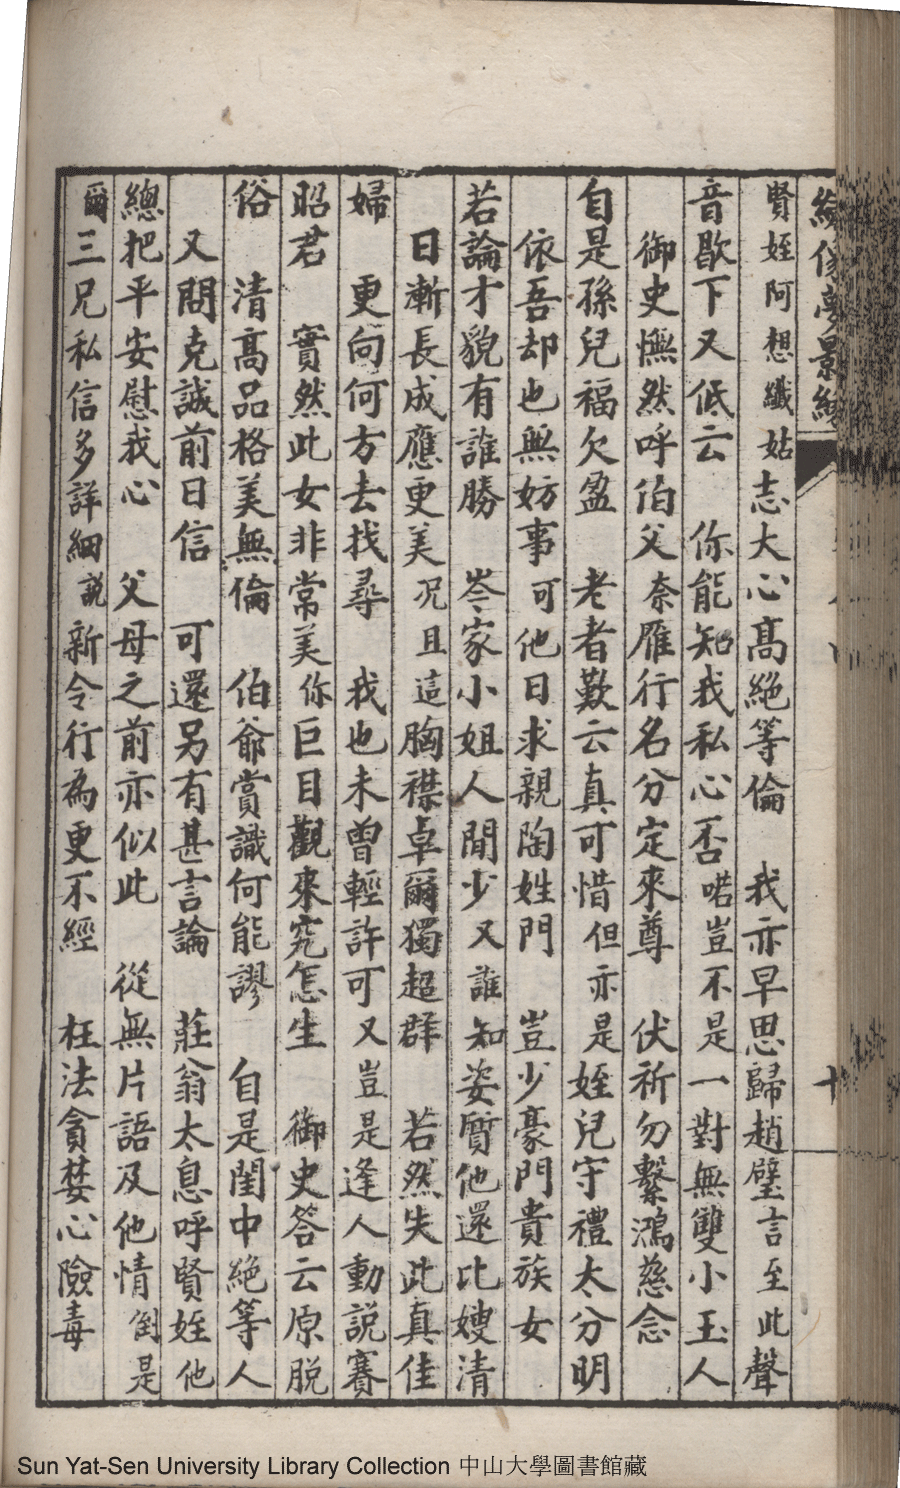 繪像夢影緣
賢姪阿想纖姑志大心髙絕等倫　我亦早思歸趙璧言至此聲
音歇下又低云　你能知我私心否喏豈不是一對無雙小玉人
御史憮然呼伯父奈雁行名分定來尊　伏祈勿繫鴻慈念
自是孫兒福欠盈　老者歎云真可惜但亦是姪兒守禮太分明
依吾却也無妨事可他日求親陶姓門　豈少豪門貴族女
若論才貌有誰勝　岑家小姐人聞少又誰知姿質他還比嫂清
日漸長成應更美况且這胸襟卓爾獨超群　若然失此真佳
婦　更向何方去找尋　我也未曾輕許可又豈是逢人動説賽
昭君　實然此女非常美你巨目觀來究怎生　御史答云原脱
俗　清髙品格美無倫　伯爺賞識何能謬　自是閨中絕等人
又問克誠前日信　可還另有甚言論　莊翁太息呼賢姪他
總把平安慰我心　父母之前亦似此　從無片語及他情倒是
爾三兄私信多詳細説新令行為更不經　枉法貪婪心險毒
Sun Yat-Sen University Library Collection 中山大學圖書館藏